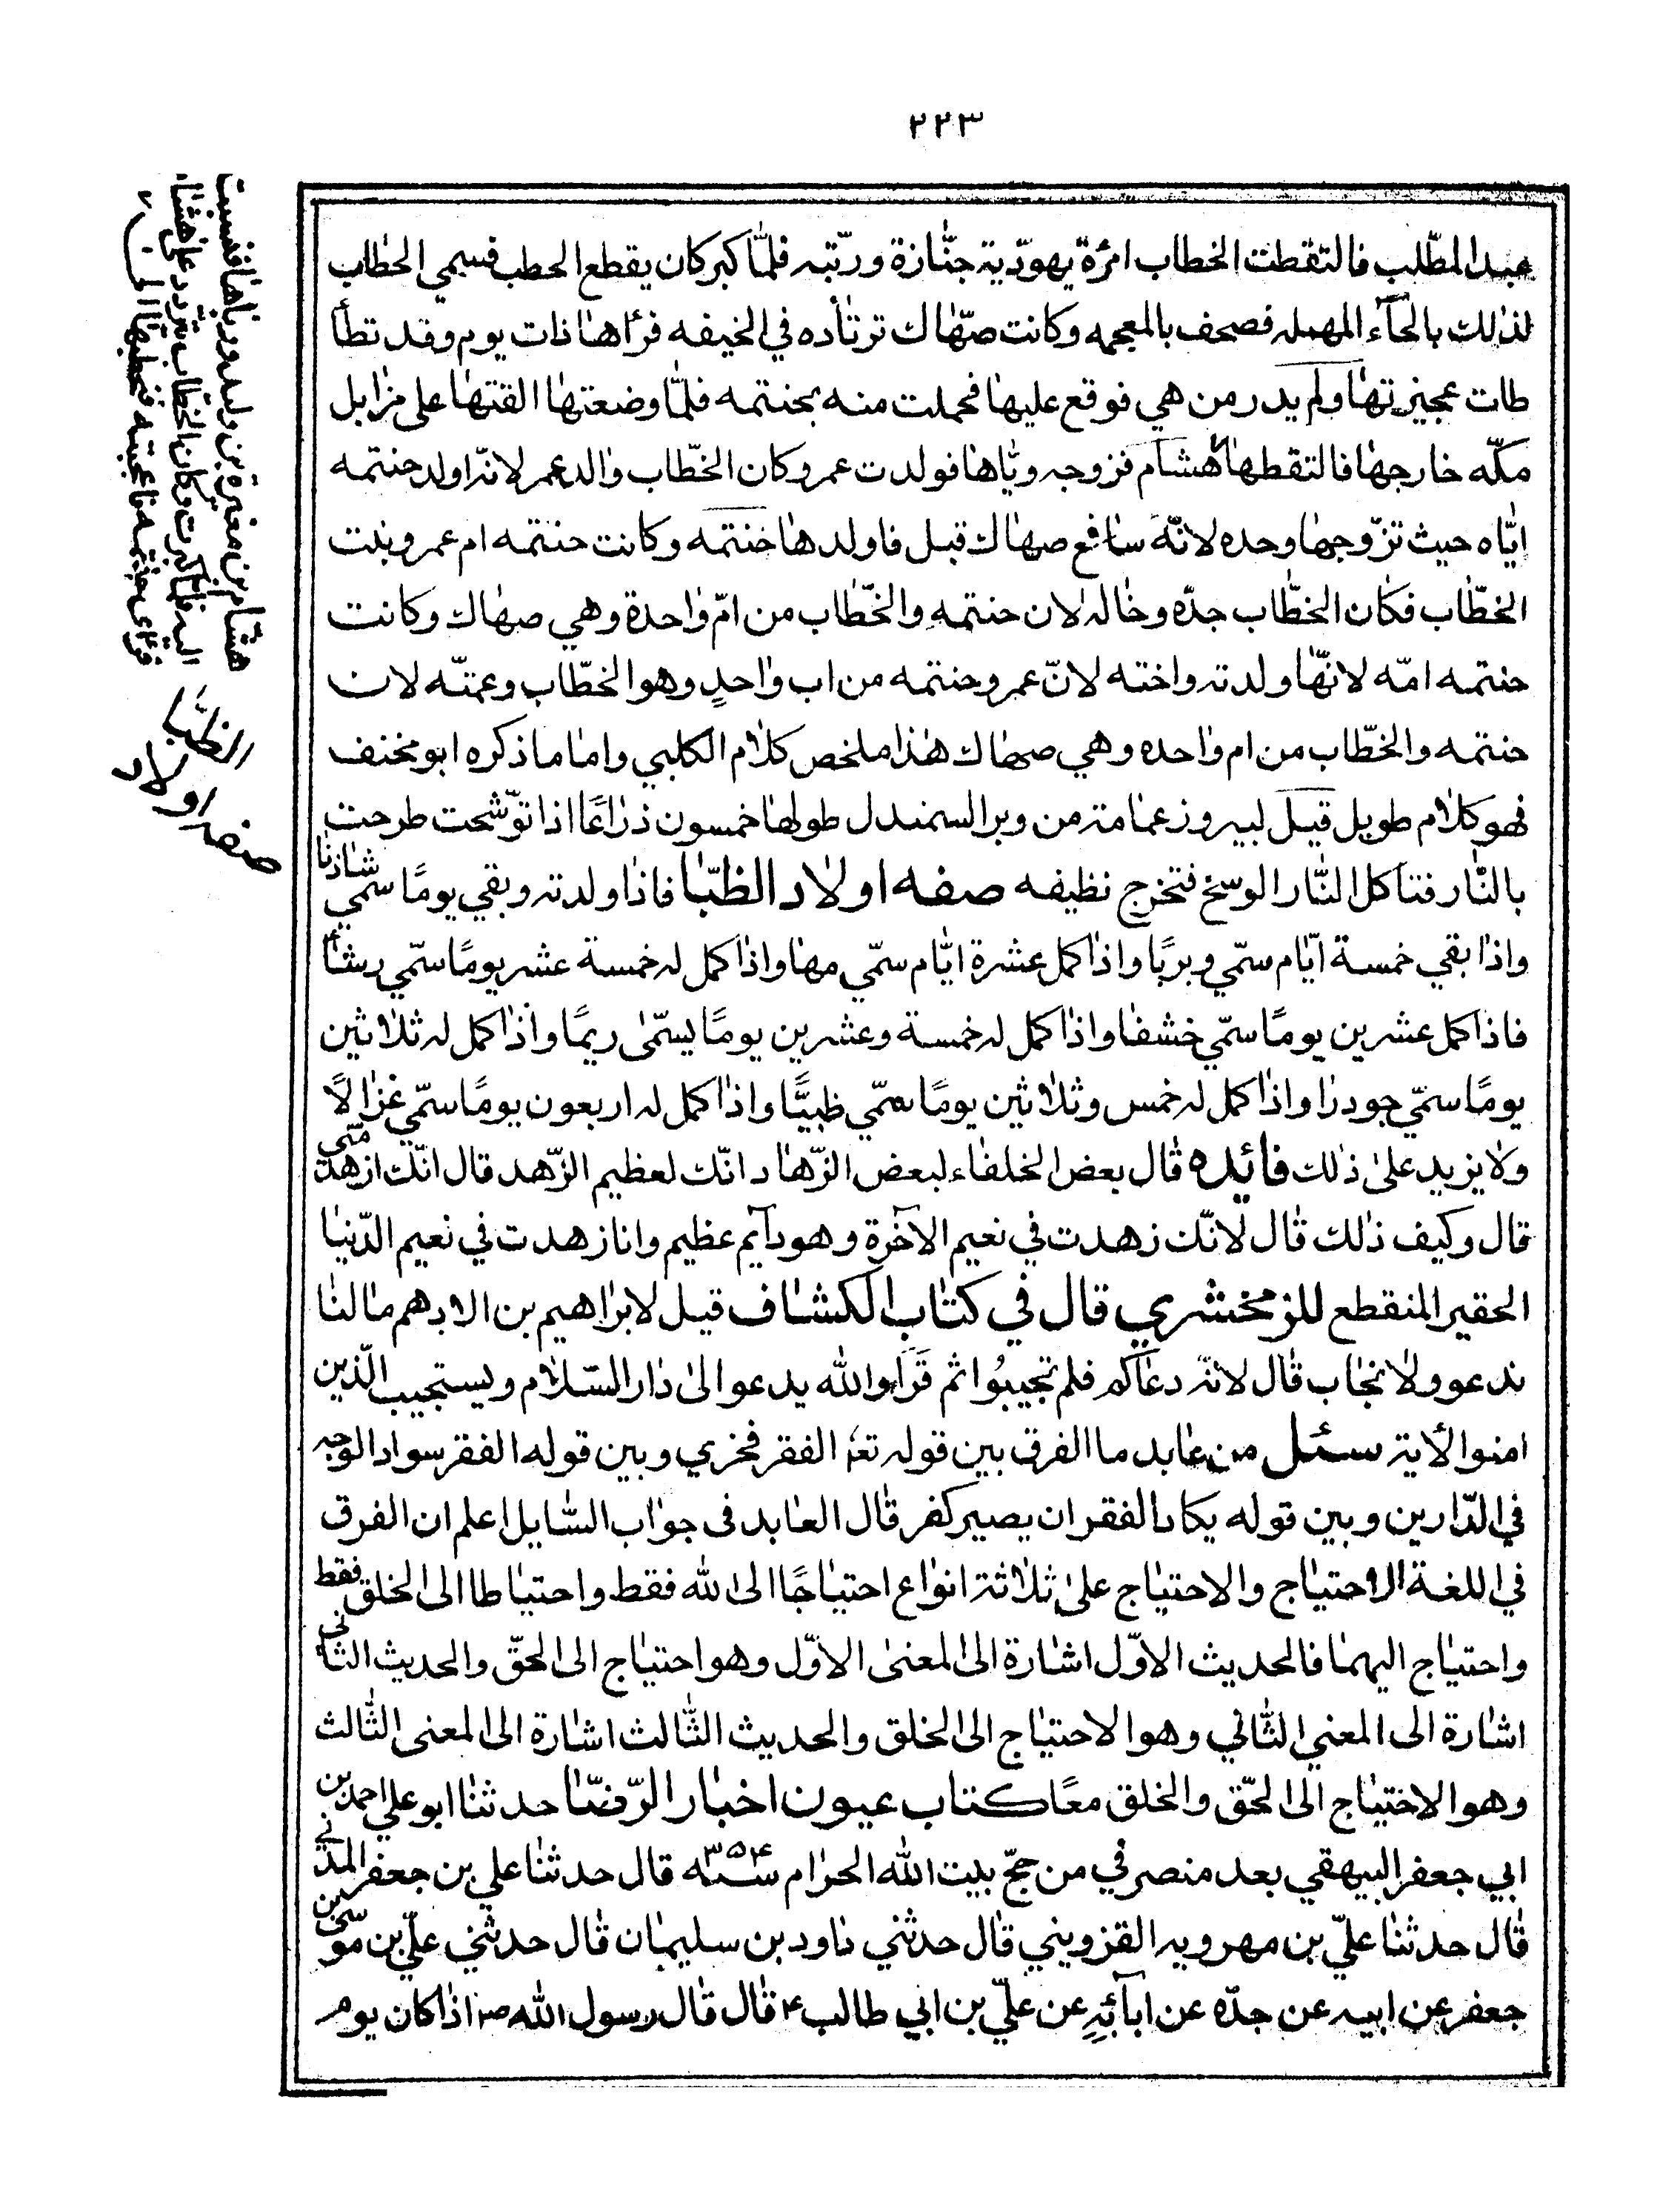 ٢٢٣
عبد المطّلب فالتقطت الخطاب امرئة يهودّية جنّازة وربّته فلمّا كبر كان يقطع الحطب فسمي الحطاب
لذلك بالحآء المهمله فصحف بالمعجمه وكانت صهّاك ترتأده في الخيفه فرءاها ذات يوم وقد تطأ
طات عجيزتها ولم يدر من هي فوقع عليها فحملت منه بحنتمه فلمّا وضعتها القتها على مزابل
مكّه خارجها فالتقطها هشام فزوجه ويّاها فولدت عمر وكان الخطّاب والد عمر لانّه اولد حنتمه
ايّاه حيث تزّوجها وحده لانّه سافع صهاك قبل فاولدها حنتمه وكانت حنتمه ام عمر وبنت
الخطّاب فكان الخطّاب جدّه وخاله لان حنتمه والخطّاب من امّ واحدة وهي صهاك وكانت
حنتمه امّه لانّها ولدته واخته لانّ عمر وحنتمه من اب واحدٍ وهو الخطّاب وعمتّه لان
حنتمه والخطّاب من ام واحده وهي صهاك هذا ملخص كلام الكلبي واما ما ذكره ابو مخنف
فهو كلام طويل قيل لبيروز عمامة من وبر السمندل طولها خمسون ذراعًا اذا توّشحت طرحت
بالنّار فتاكل النّار الوسخ فتخرج نظيفه صفه اولاد الظبّا فاذا ولدته وبقي يومًا سمّي شاذنا
واذا بقي خمسة ايّام سمّي وبريًا واذا كمل عشرة ايّام سمّي مها واذا كمل له خمسة عشر يومًا سمّي رشأ
فاذا كمل عشرين يومًا سمّي خشفا واذا كمل له خمسة وعشرين يومًا يسمّى ريمًا واذا كمل له ثلاثين
يومًا سمّي جودرا واذا كمل له خمس وثلاثين يومًا سمّي ظبيًّا واذا كمل له اربعون يومًا سمّي غزالًا
ولا يزيد على ذلك فائده قال بعض الخلفاء لبعض الزّهاد انّك لعظيم الزّهد قال انّك ازهد منّي
قال وكيف ذلك قال لانّك زهدت في نعيم الاخرة وهو دآيم عظيم وانا زهدت في نعيم الدّنيا
الحقير المنقطع للزمخشري قال في كتاب الكشاف قيل لابراهيم بن الادهم ما لنا
ندعو ولا نجاب قال لانّه دعاكم فلم تجيبُوا ثم قَرَأ والله يدعو الى دار السّلام ويستجيب الّذين
امنوا الأية سئل من عابد ما الفرق بين قوله تع الفقر فخري وبين قوله الفقر سواد الوجه
في الدّارين وبين قوله يكاد الفقر ان يصير كفر قال العابد فى جواب السّايل اعلم ان الفرق
في اللغة الاحتياج والاحتياج على ثلاثة انواع احتياجًا الى الله فقط واحتياطا الى الخلق فقط
واحتياج اليهما فالحديث الاوّل اشارة الى المعنى الاوّل وهو احتياج الى الحقّ والحديث الثاني
اشارة الى المعنى الثّاني وهو الاحتياج الى الخلق والحديث الثّالث اشارة الى المعنى الثّالث
وهو الاختياج الى الحّق والخلق معًا كتاب عيون اخبار الرّضا حدثنا ابو علي احمد بن
ابي جعفر البيهقي بعد منصرفي من حجّ بيت الله الحرام سنة ٣٥٤ قال حدثنا علي بن جعفر المدني
قال حدثنا عليّ بن مهرويه القزويني قال حدثني داود بن سليمان قال حدثني عليّ بن موسى بن
جعفر عن ابيه عن جدّه عن ابآئهِ عن عليّ بن ابي طالب ع قال قال رسول الله ص اذا كان يوم
هشام بن مغيرة بن وليد ورباها فنسبت
اليه فلما كبرت وكان الخطاب يتردد على هشام
فرءاى حنتمه فاعجبته فخطبها الى
صفه اولاد
الظبّا